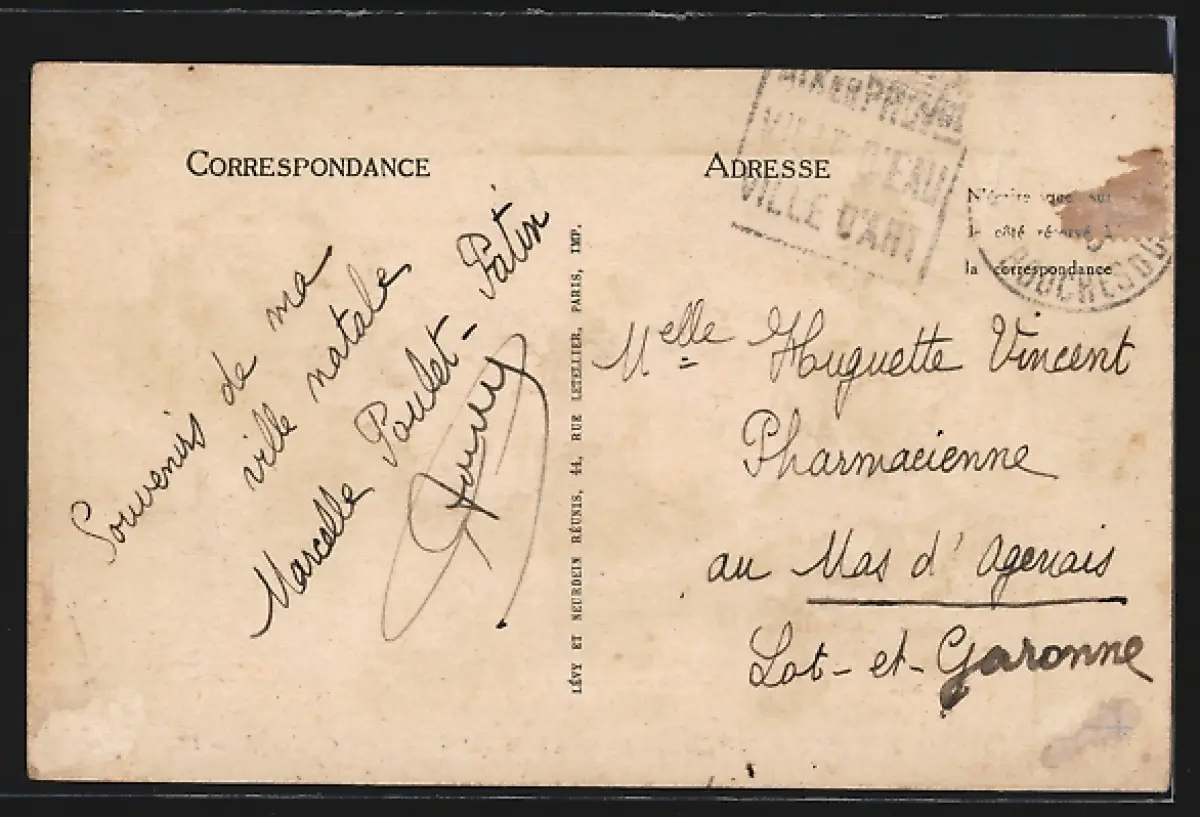 CORRESPONDANCE
Souvenirs de ma
ville natale
Marcelle Poulet-Patin
LÉVY ET NEURDEIN RÉUNIS, 44, RUE LETELLIER, PARIS, IMP.
ADRESSE
VILLE D'EAU
VILLE D'ART
N'écrire que sur
le côté réservé à
la correspondance
BOUCHES DU
Melle Huguette Vincent
Pharmacienne
au Mas d'Agenais
Lot-et-Garonne